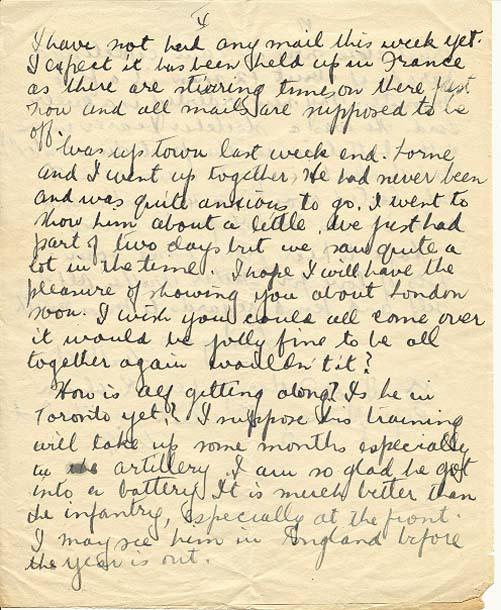 4
I have not had any mail this week yet.
I expect it has been held up in France
as there are stirring times on there just
now and all mails are supposed to be
off.
Was up town last week end. Lorne
and I went up together, He had never been
and was quite anxious to go. I went to
show him about a little, We just had
part of two days but we saw quite a
lot in the time. I hope I will have the
pleasure of showing you about London
soon. I wish you could all come over
it would be jolly fine to be all
together again wouldn't it?
How is Alf getting along? Is he in
Toronto yet? I suppose his training
will take up some months especially
in artillery. I am so glad he got
into a battery. It is much better than
the infantry, especially at the front.
I may see him in England before
the year is out.